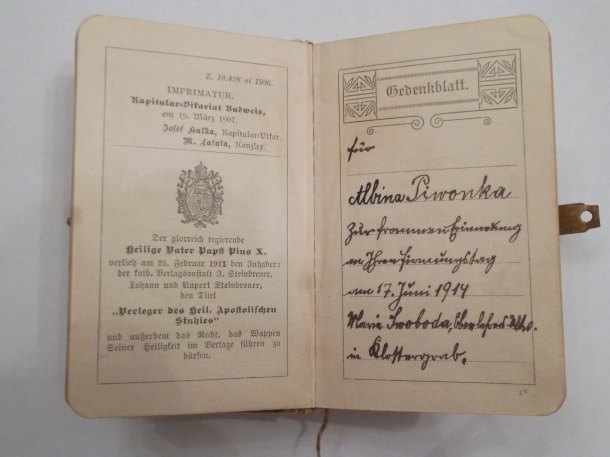 Z. 10.428 ai 1906.
IMPRIMATUR.
Kapitular-Vikariat Budweis,
am 19. März 1907.
Josef Hulka, Kapitular-Vikar.
M. Lafata, Kanzler.
Der glorreich regierende
Heilige Vater Papst Pius X.
verlieh am 25. Februar 1911 den Inhabern
der kath. Verlagsanstalt J. Steinbrener,
Johann und Rupert Steinbrener,
den Titel
„Verleger des Heil. Apostolischen
Stuhles"
und außerdem das Recht, das Wappen
Seiner Heiligkeit im Verlage führen zu
dürfen.
Gedenkblatt.
für
Albina Piwonka
Zur frommen Erinnerung
an Ihren Firmungstag
am 17. Juni 1914
Marie Swoboda,
in Klostergrab.
1*